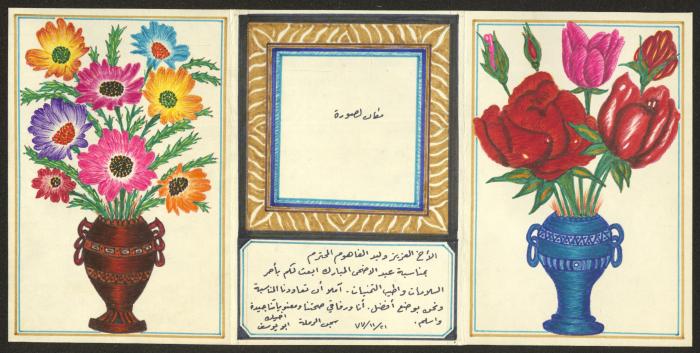 مكان لصورة
الأخ العزيز وليد الفاهوم المحترم
بمناسبة عيد الاضحى المبارك ابعث لكم بأحر
السلامات واطيب التمنيات. آملا أن تعاودنا المناسبة
ونحن بوضع أفضل. أنا ورفاقي صحتنا ومعنوياتنا جيدة
واسلم. اخيك
سجن الرملة ابو يوسف